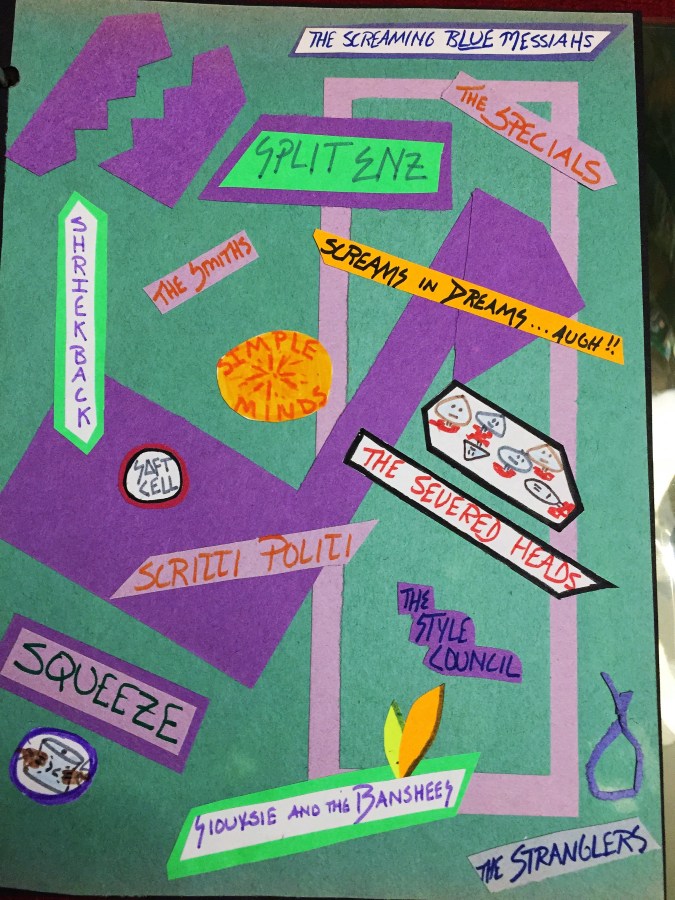 THE SCREAMING BLUE MESSIAHS
THE SPECIALS
SPLIT ENZ
SHRIEKBACK
THE SMITHS
SCREAMS IN DREAMS...AUGH!!
SIMPLE
MINDS
SOFT
CELL
THE SEVERED HEADS
SCRITTI POLITI
THE
STYLE
COUNCIL
SQUEEZE
SIOUXSIE AND THE BANSHEES
THE STRANGLERS